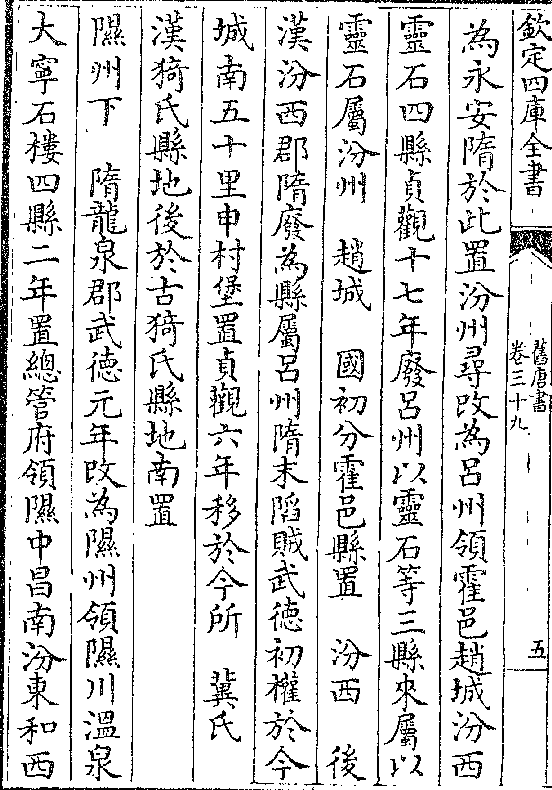 欽定四庫全書
舊唐書
卷三十九
五
為永安隋於此置汾州尋改為呂州領霍邑趙城汾西
靈石四縣貞觀十七年廢呂州以靈石等三縣來屬以
靈石屬汾州　趙城　國初分霍邑縣置　汾西　後
漢汾西郡隋廢為縣屬呂州隋末陷賊武德初權於今
城南五十里申村堡置貞觀六年移於今所　冀氏
漢猗氏縣地後於古猗氏縣地南置
隰州下　隋龍泉郡武德元年改為隰州領隰川溫泉
大寧石樓四縣二年置總管府領隰中昌南汾東和西